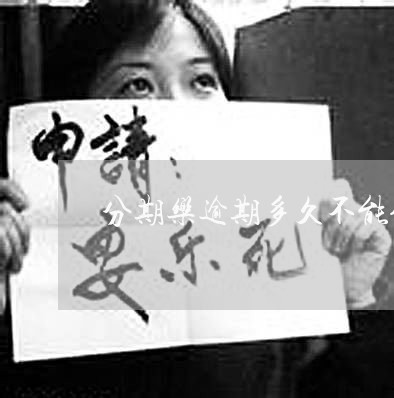 申請:
分期樂逾期多久不能
安乐死